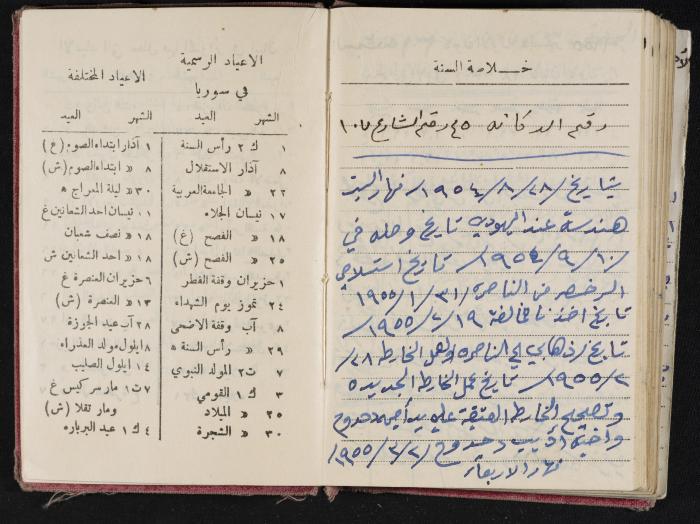 الاعياد الرسمية
في سوريا
الشهر العيد
١ ك ٢ رأس السنة
٨ آذار الاستقلال
٢٢ « الجامعة العربية
١٧ نيسان الجلاء
١٨ « الفصح (غ)
٢٥ « الفصح (ش)
١ حزيران وقفة الفطر
٢٤ تموز يوم الشهداء
٨ آب وقفة الاضحى
٢٩ « رأس السنة »
٧ ت٢ المولد النبوي
٣ ك ١ القومي
٢٥ « الميلاد
٣٠ « الشجرة
الاعياد المختلفة
الشهر العيد
١ آذار ابتداء الصوم (غ)
٨ « ابتداء الصوم (ش)
٣٠ « ليلة المعراج »
١١ نيسان احد الشعانين غ
١٨ « نصف شعبان
١٨ « احد الشعانين ش
٦ حزيران العنصرة غ
١٣ « العنصرة (ش)
٢٨ آب عيد الجوزة
٨ ايلول مولد العذراء
١٤ ايلول الصليب
٧ ت١ مار سركيس غ
ومار تقلا (ش)
٤ ك ١ عيد البرباره
خلاصة السنة
رقم الدكانه ٤٥ رقم الشارع ١٠٧
بتاريخ ٢٨/٨/١٩٥٤ نهار السبت
هندسة عند اليهودي تاريخ وصله في
١٠/٩/١٩٥٤ تاريخ استلامي
الرخصه من الناصره ٣١/١/١٩٥٥
تاريخ اخذنا مخالفة ١٩/٢/١٩٥٥
تاريخ ذهابي الى الناصره ولعمل الخارطه ٢٨/
٢/١٩٥٥ تاريخ عمل الخارطه الجديده
وتصحيح الخارطه العتيقة عليه
واخيه اديب دحدوح ٢/٣/١٩٥٥
نهار الاربعاء